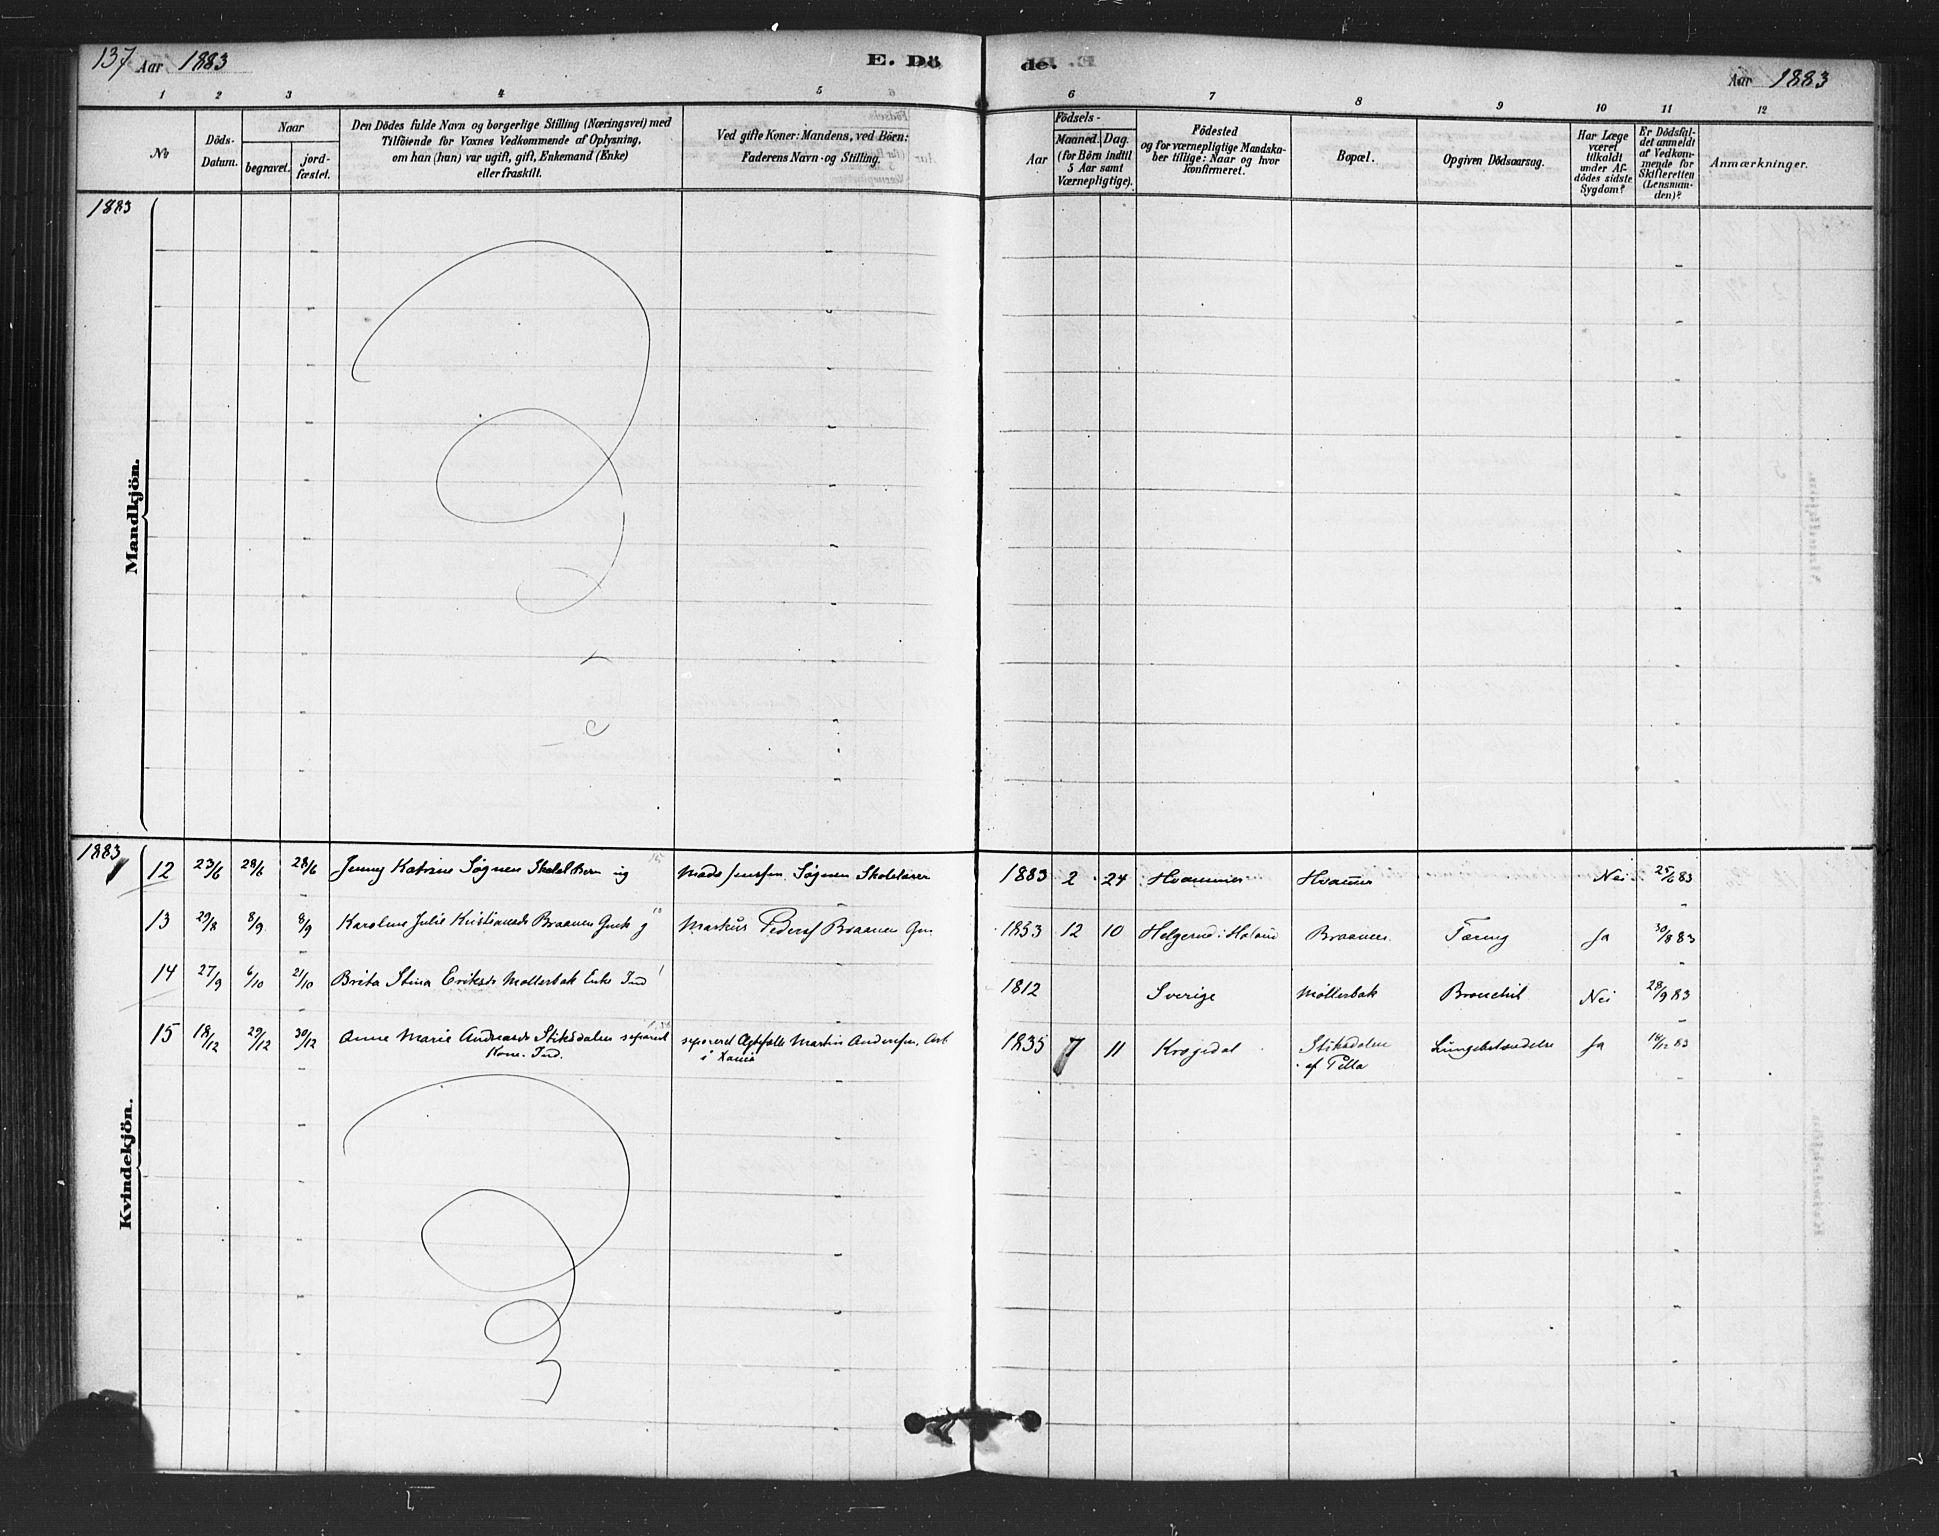 137 Aar 1883 E. Dö de. Aar 1883
1 2 3 4 5 6 7 8 9 10 11 12
No
Döds-Datum.
Naar
begravet.
jord-fæstet.
Den Dödes fulde Navn og borgerlige Stilling (Næringsvei) med
Tilföiende for Voxnes Vedkommende af Oplysning,
om han (hun) var ugift, gift, Enkemand (Enke)
eller fraskilt.
Ved gifte Koner: Mandens, ved Börn:
Faderens Navn og Stilling.
Födsels-
Aar Maaned. Dag.
(for Börn indtil
5 Aar samt
Værnepligtige).
Födested
og for værnepligtige Mandska-
ber tillige: Naar og hvor
konfirmeret.
Bopæl.
Opgiven Dödsaarsag.
Har Læge
været
tilkaldt
under Af-
dödes sidste
Sygdom?
Er Dödsfal-
det anmeldt
af Vedkom-
mende for
Skifteretten
(Lensman-
den)?
Anmærkninger.
1883
Mandkjön.
1883
Kvindekjön.
12 23/6 28/6 28/6 Jenny Katrine Søgnen ug Mads Jenssen Søgnen Skolelærer 1883 2 24 Hvammen Hvammen Nei 25/6 83
13 29/8 8/9 8/9 Karoline Julie Kristiansd Braanen Gmk g Markus Peders Braanen Gm. 1853 12 10 Helgerud i Høland Braanen Tæring Ja 30/8 83
14 27/9 6/10 21/10 Brita Stina Eriksd Møllerbak Enke Ind 1812 Sverige Møllerbak Bronchit Nei 28/9 83
15 18/12 29/12 30/12 Anne Marie Andreasd Stiksdalen separeret separeret Ægtefælle Martin Andersen, Arb 1835 7 11 Krogedal Stiksdalen Lungebetændelse Ja 18/12 83
Kone. Ind. i